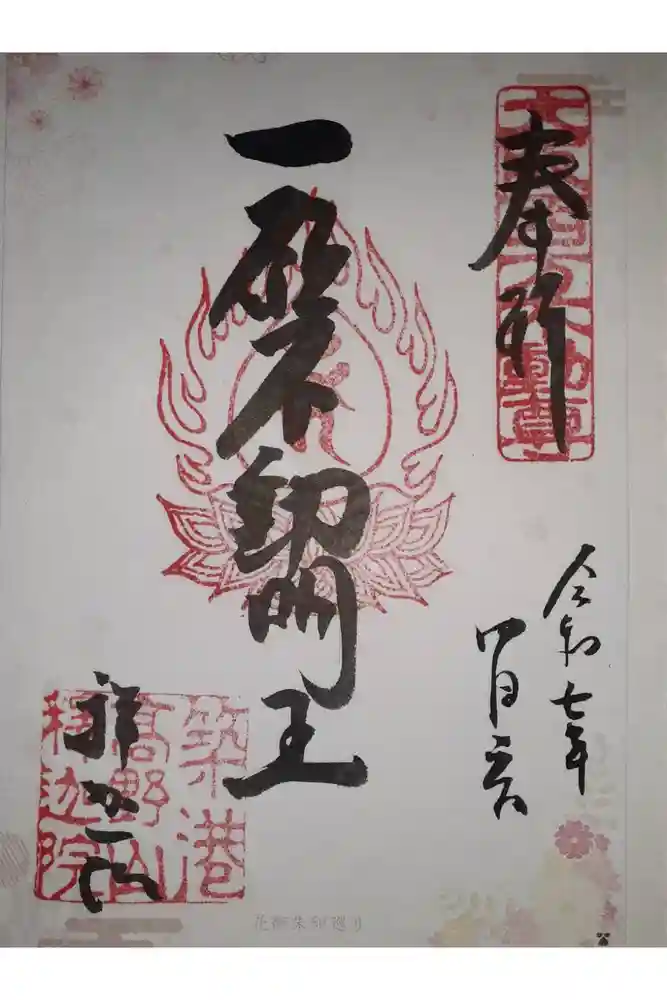 奉拝
令和七年
四月
一願不動明王
築港
高野山
釋迦院
釈迦院
花御朱印巡り